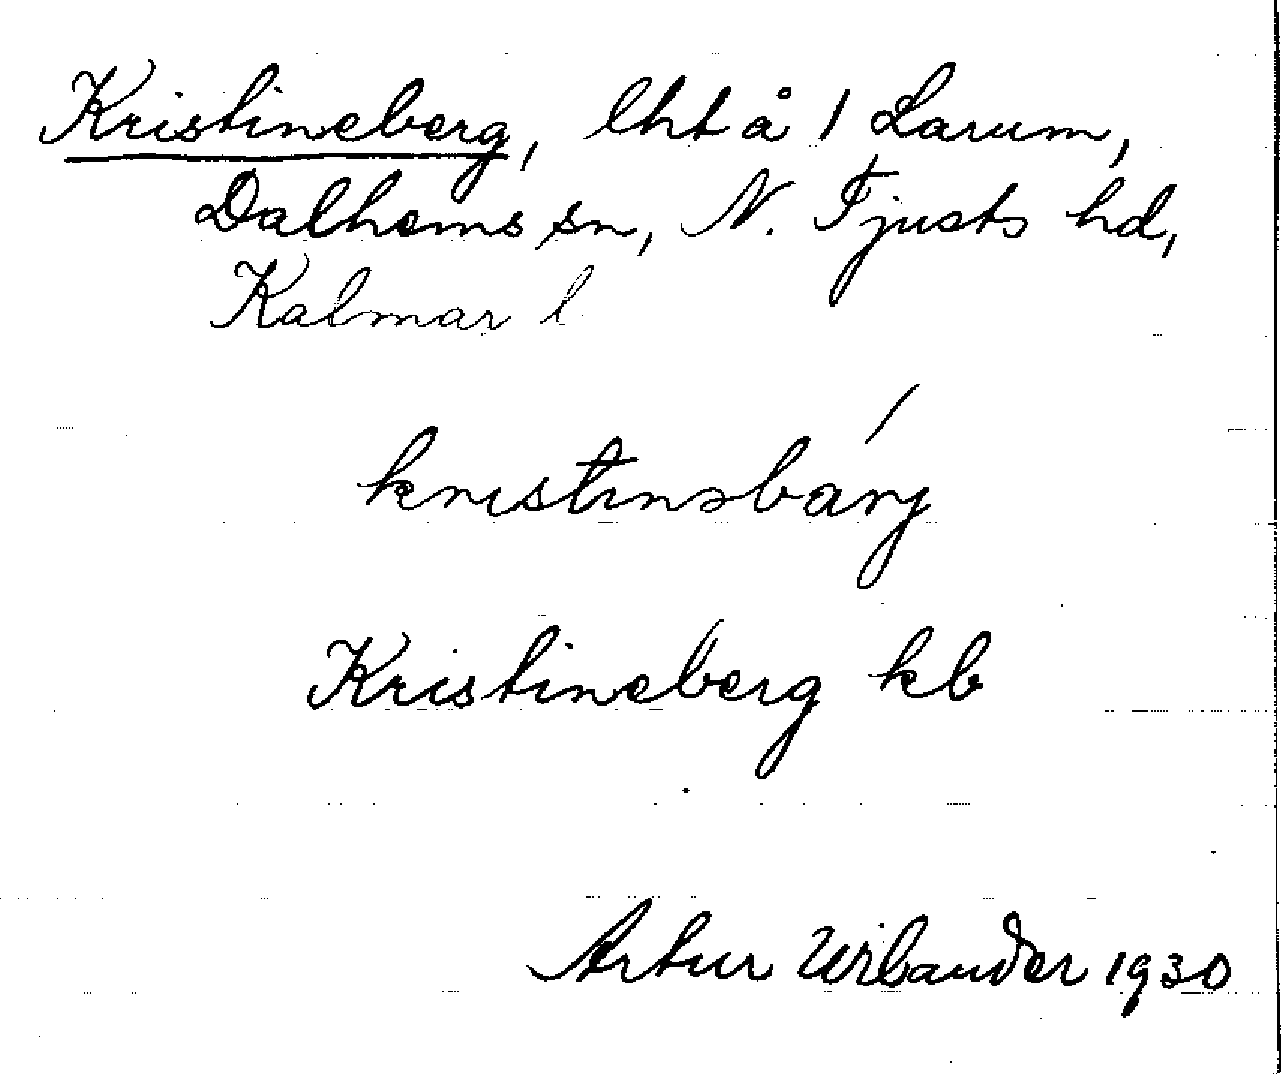 Kristineberg, lht å 1 Larum,
Dalhems sn, N. Tjusts hd,
Kalmar l
kristinəbárj
Kristineberg kb
Artur Wilander 1930